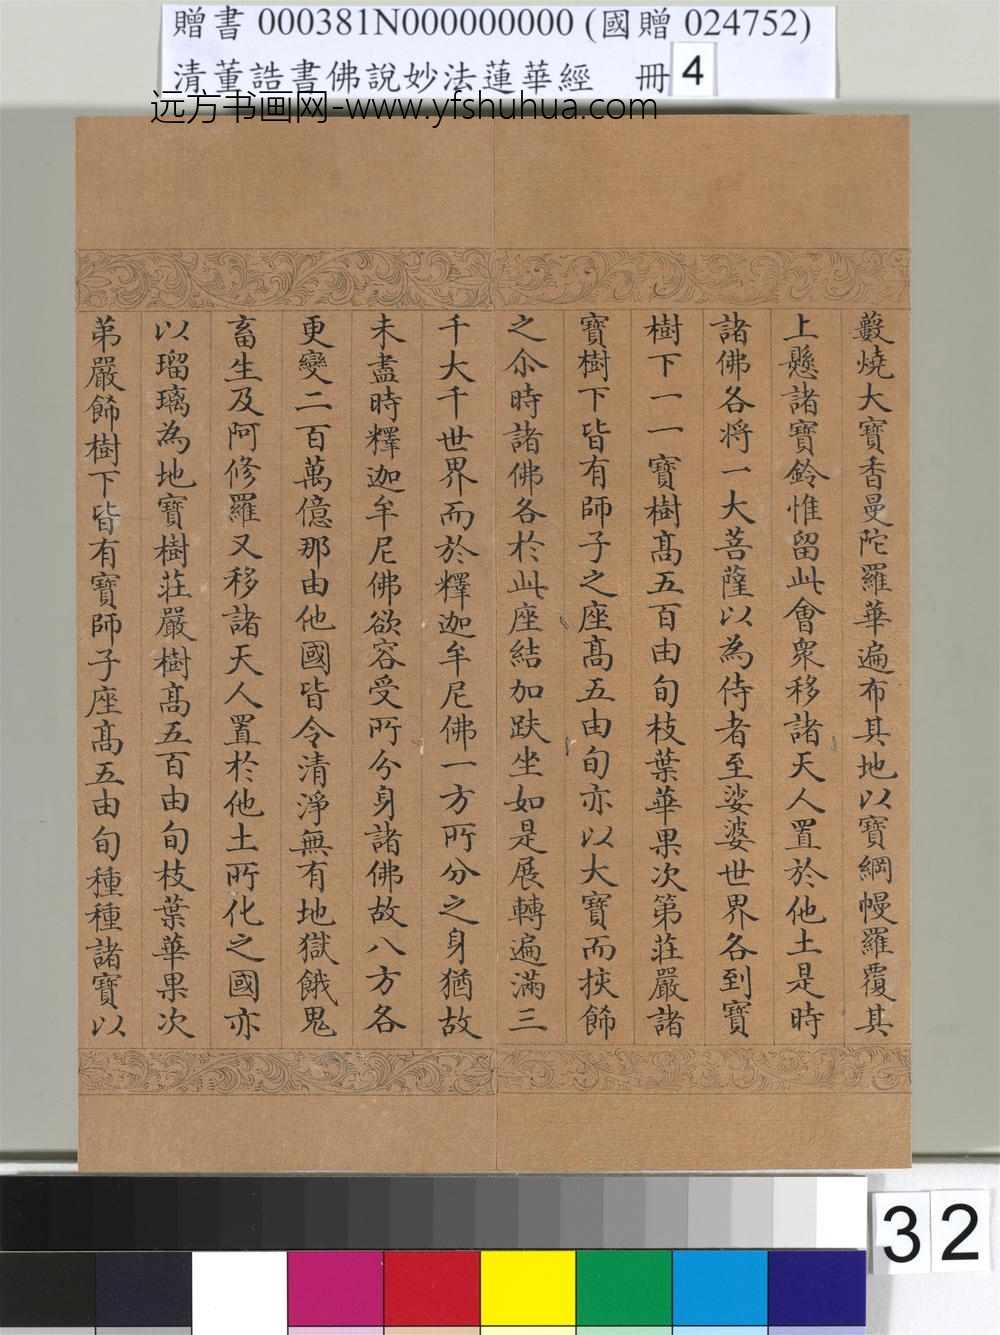 贈書 000381N000000000 (國贈 024752)
清董誥書佛說妙法蓮華經 冊 4
远方书画网-www.yfshuhua.com
藪燒大寶香曼陀羅華遍布其地以寶網幔羅覆其
上懸諸寶鈴惟留此會衆移諸天人置於他土是時
諸佛各將一大菩薩以為侍者至娑婆世界各到寶
樹下一一寶樹髙五百由旬枝葉華果次第莊嚴諸
寶樹下皆有師子之座髙五由旬亦以大寶而挾飾
之尒時諸佛各於此座結加趺坐如是展轉遍滿三
千大千世界而於釋迦牟尼佛一方所分之身猶故
未盡時釋迦牟尼佛欲容受所分身諸佛故八方各
更變二百萬億那由他國皆令清淨無有地獄餓鬼
畜生及阿修羅又移諸天人置於他土所化之國亦
以瑠璃為地寶樹莊嚴樹髙五百由旬枝葉華果次
第嚴飾樹下皆有寶師子座髙五由旬種種諸寶以
32